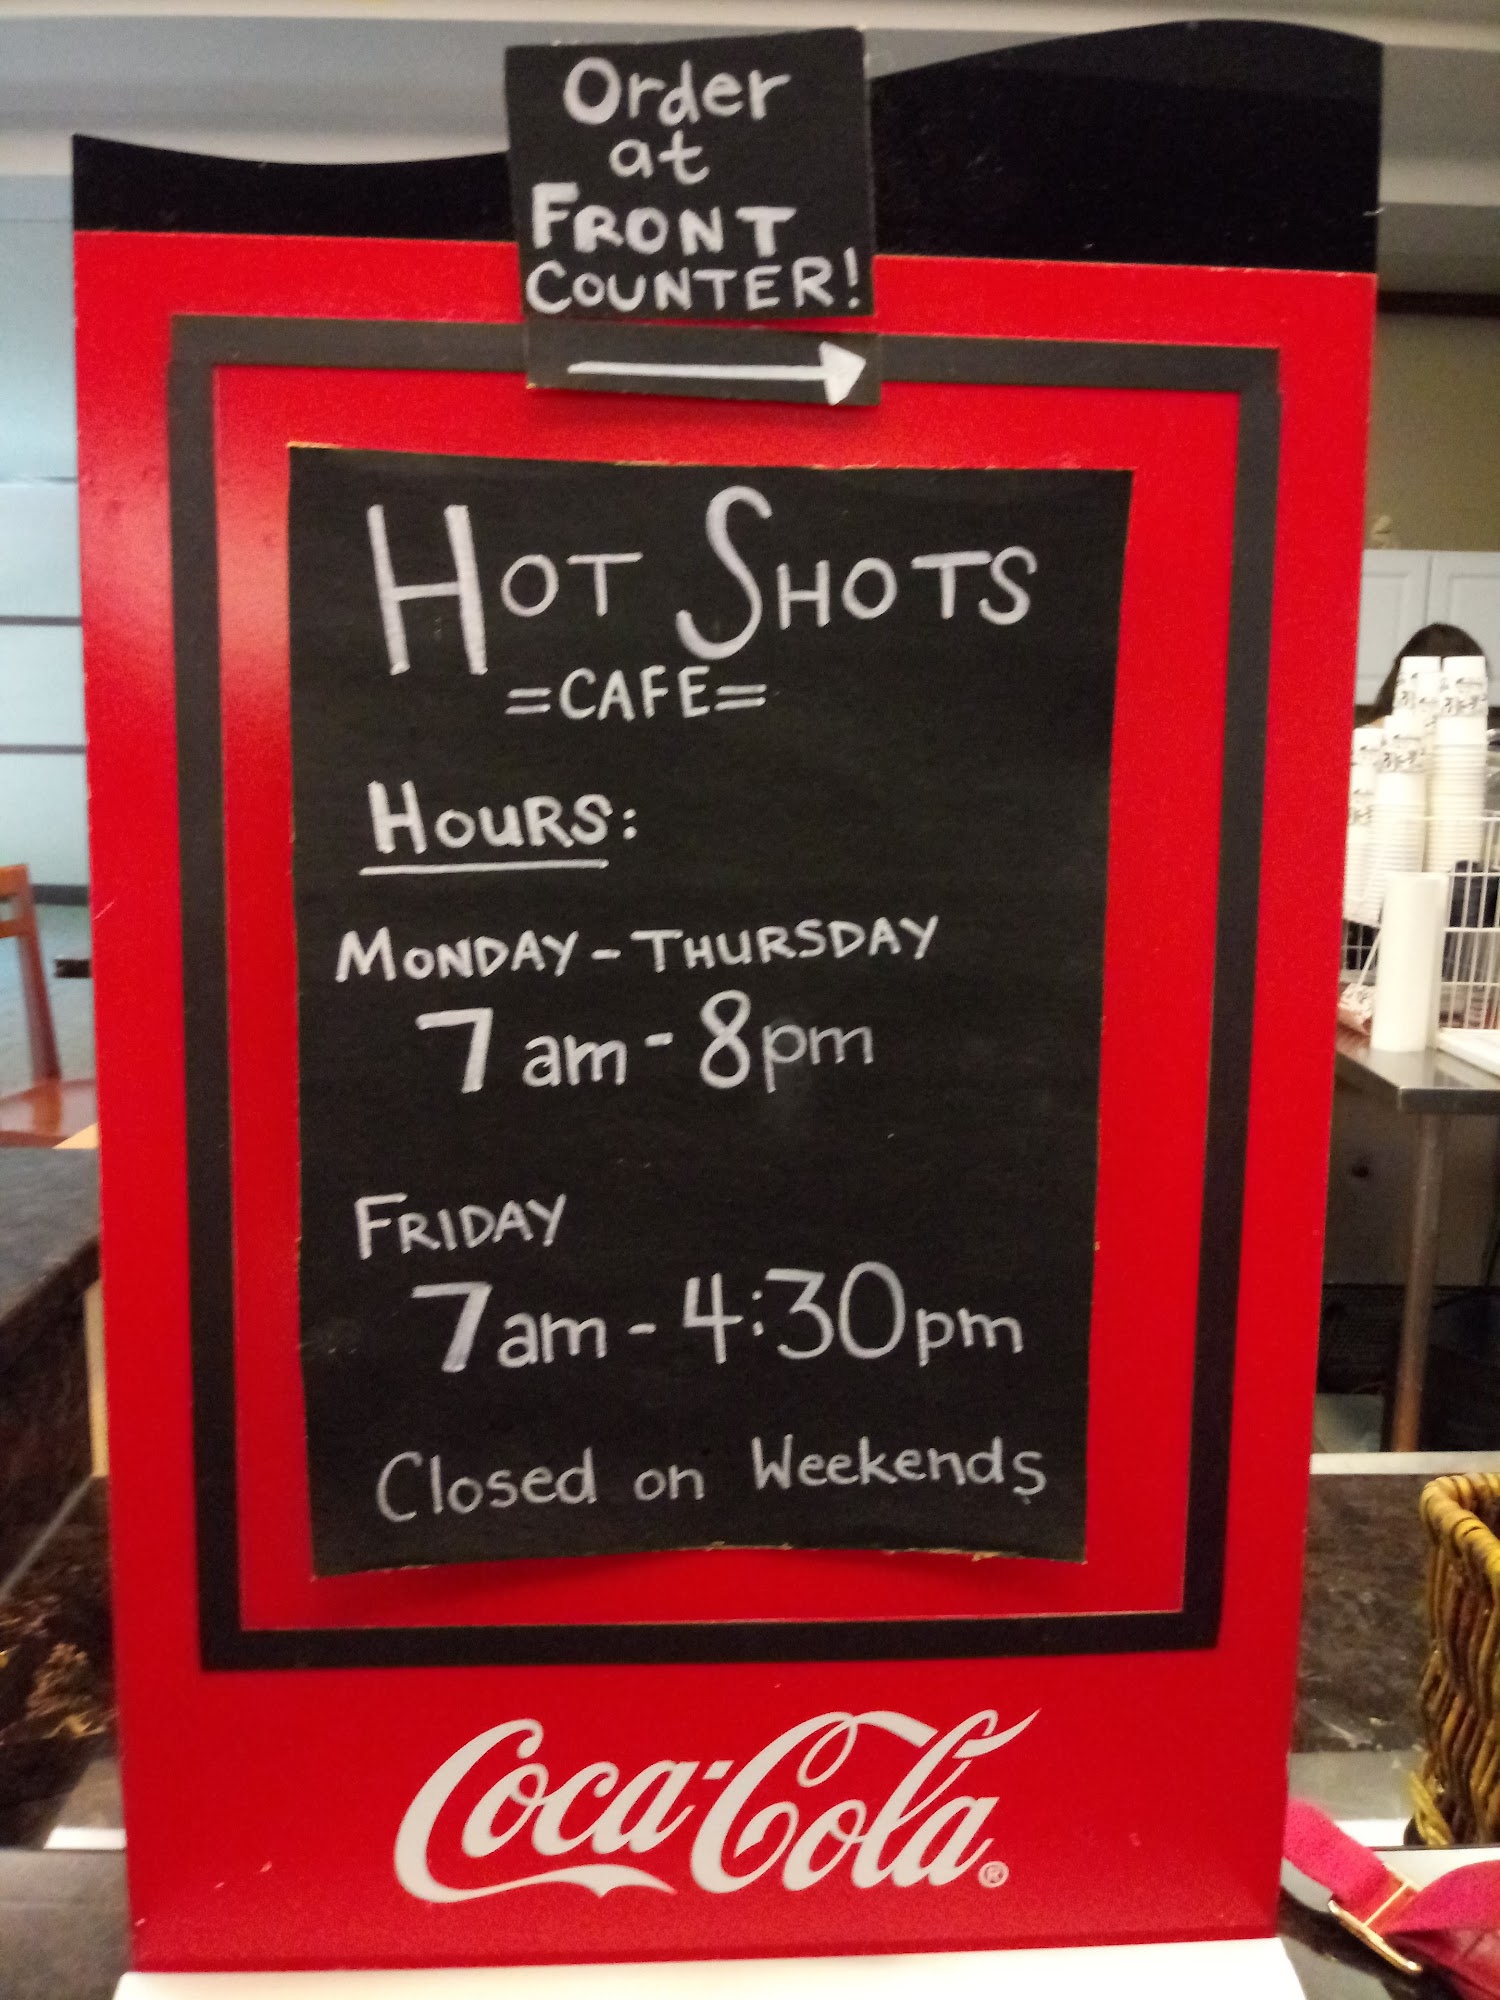 Order
at
FRONT
COUNTER!
HOT SHOTS
=CAFE=
HOURS:
MONDAY - THURSDAY
7am - 8pm
FRIDAY
7am - 4:30pm
Closed on Weekends
Coca-Cola®